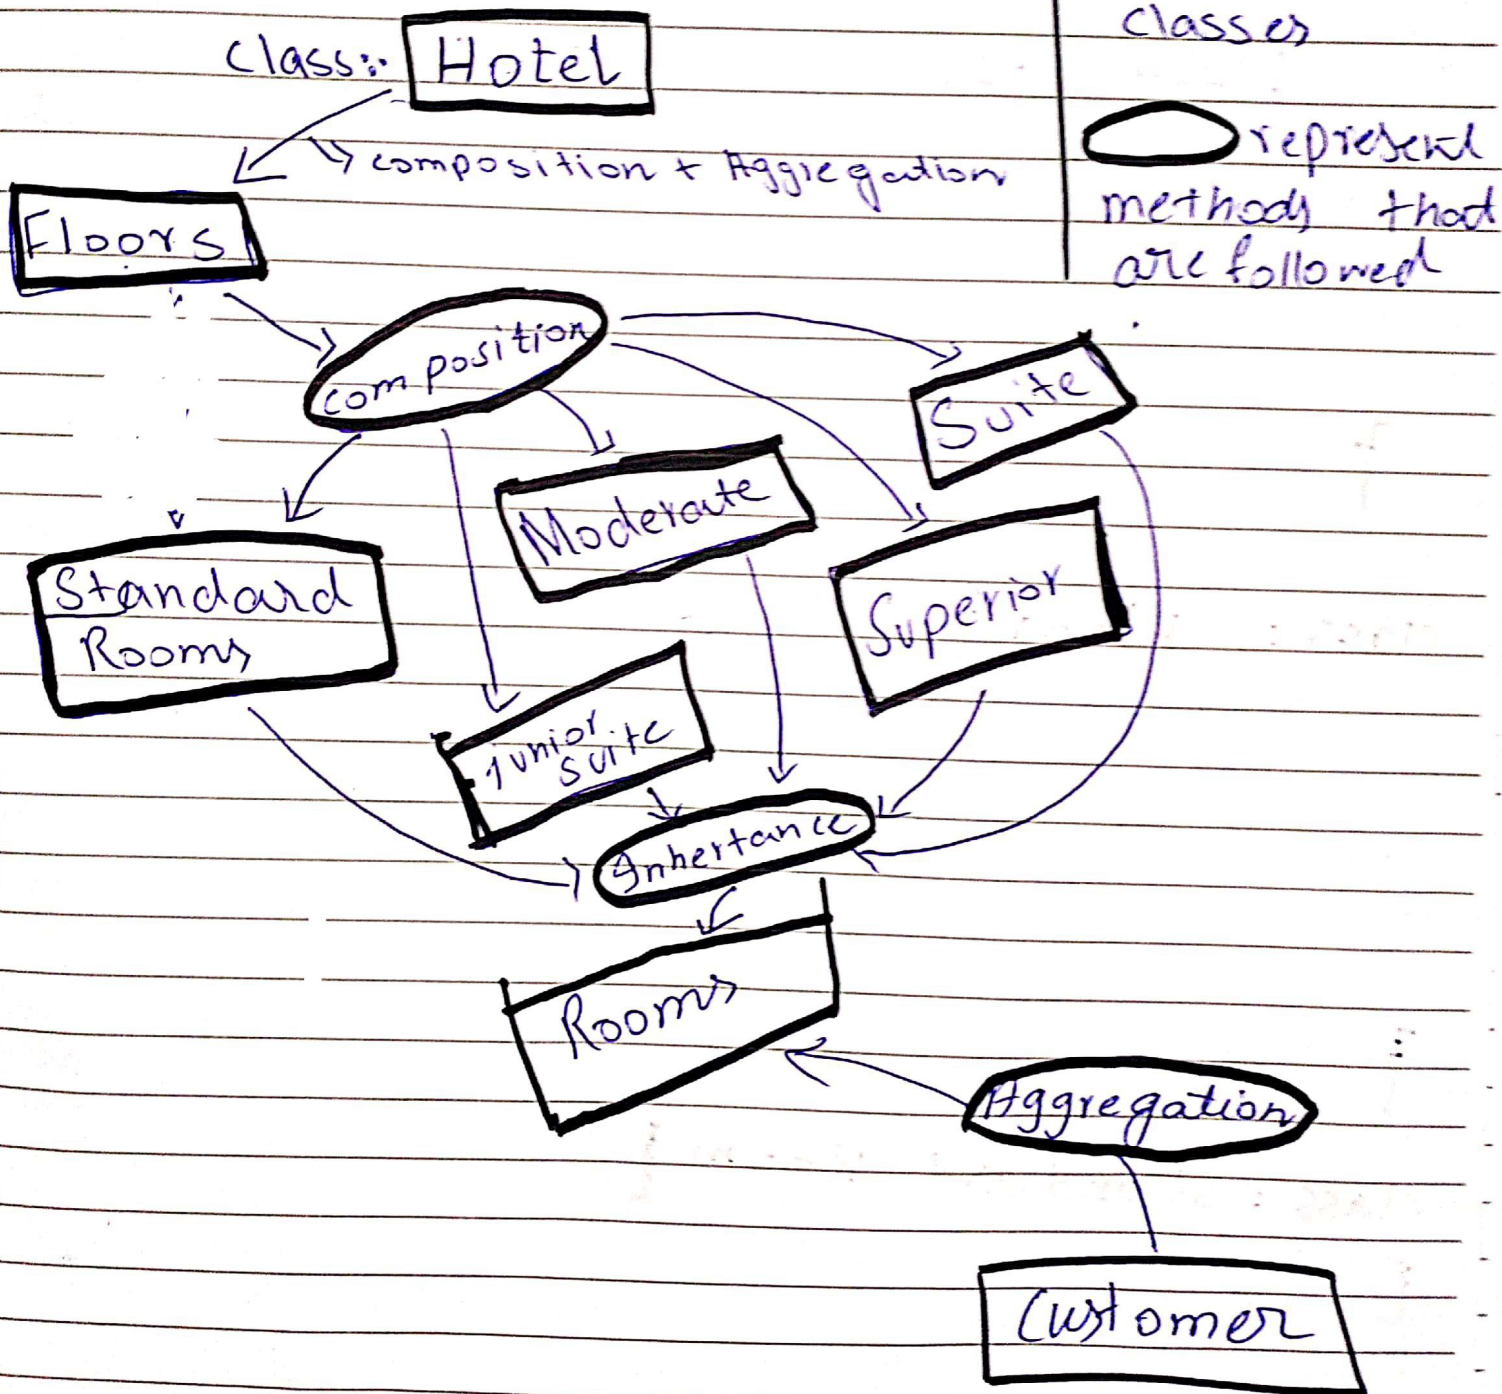 Class:
Hotel
classes
represent
methods that
are followed
composition + Aggregation
Floors
composition
Suite
Moderate
Superior
Standard
Rooms
Junior
Suite
Inhertance
Rooms
Aggregation
Customer